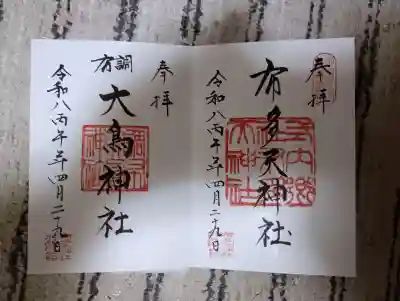 奉拝
布多天神社
令和八丙午年四月二十九日
奉拝
調方
大鳥神社
令和八丙午年四月二十九日